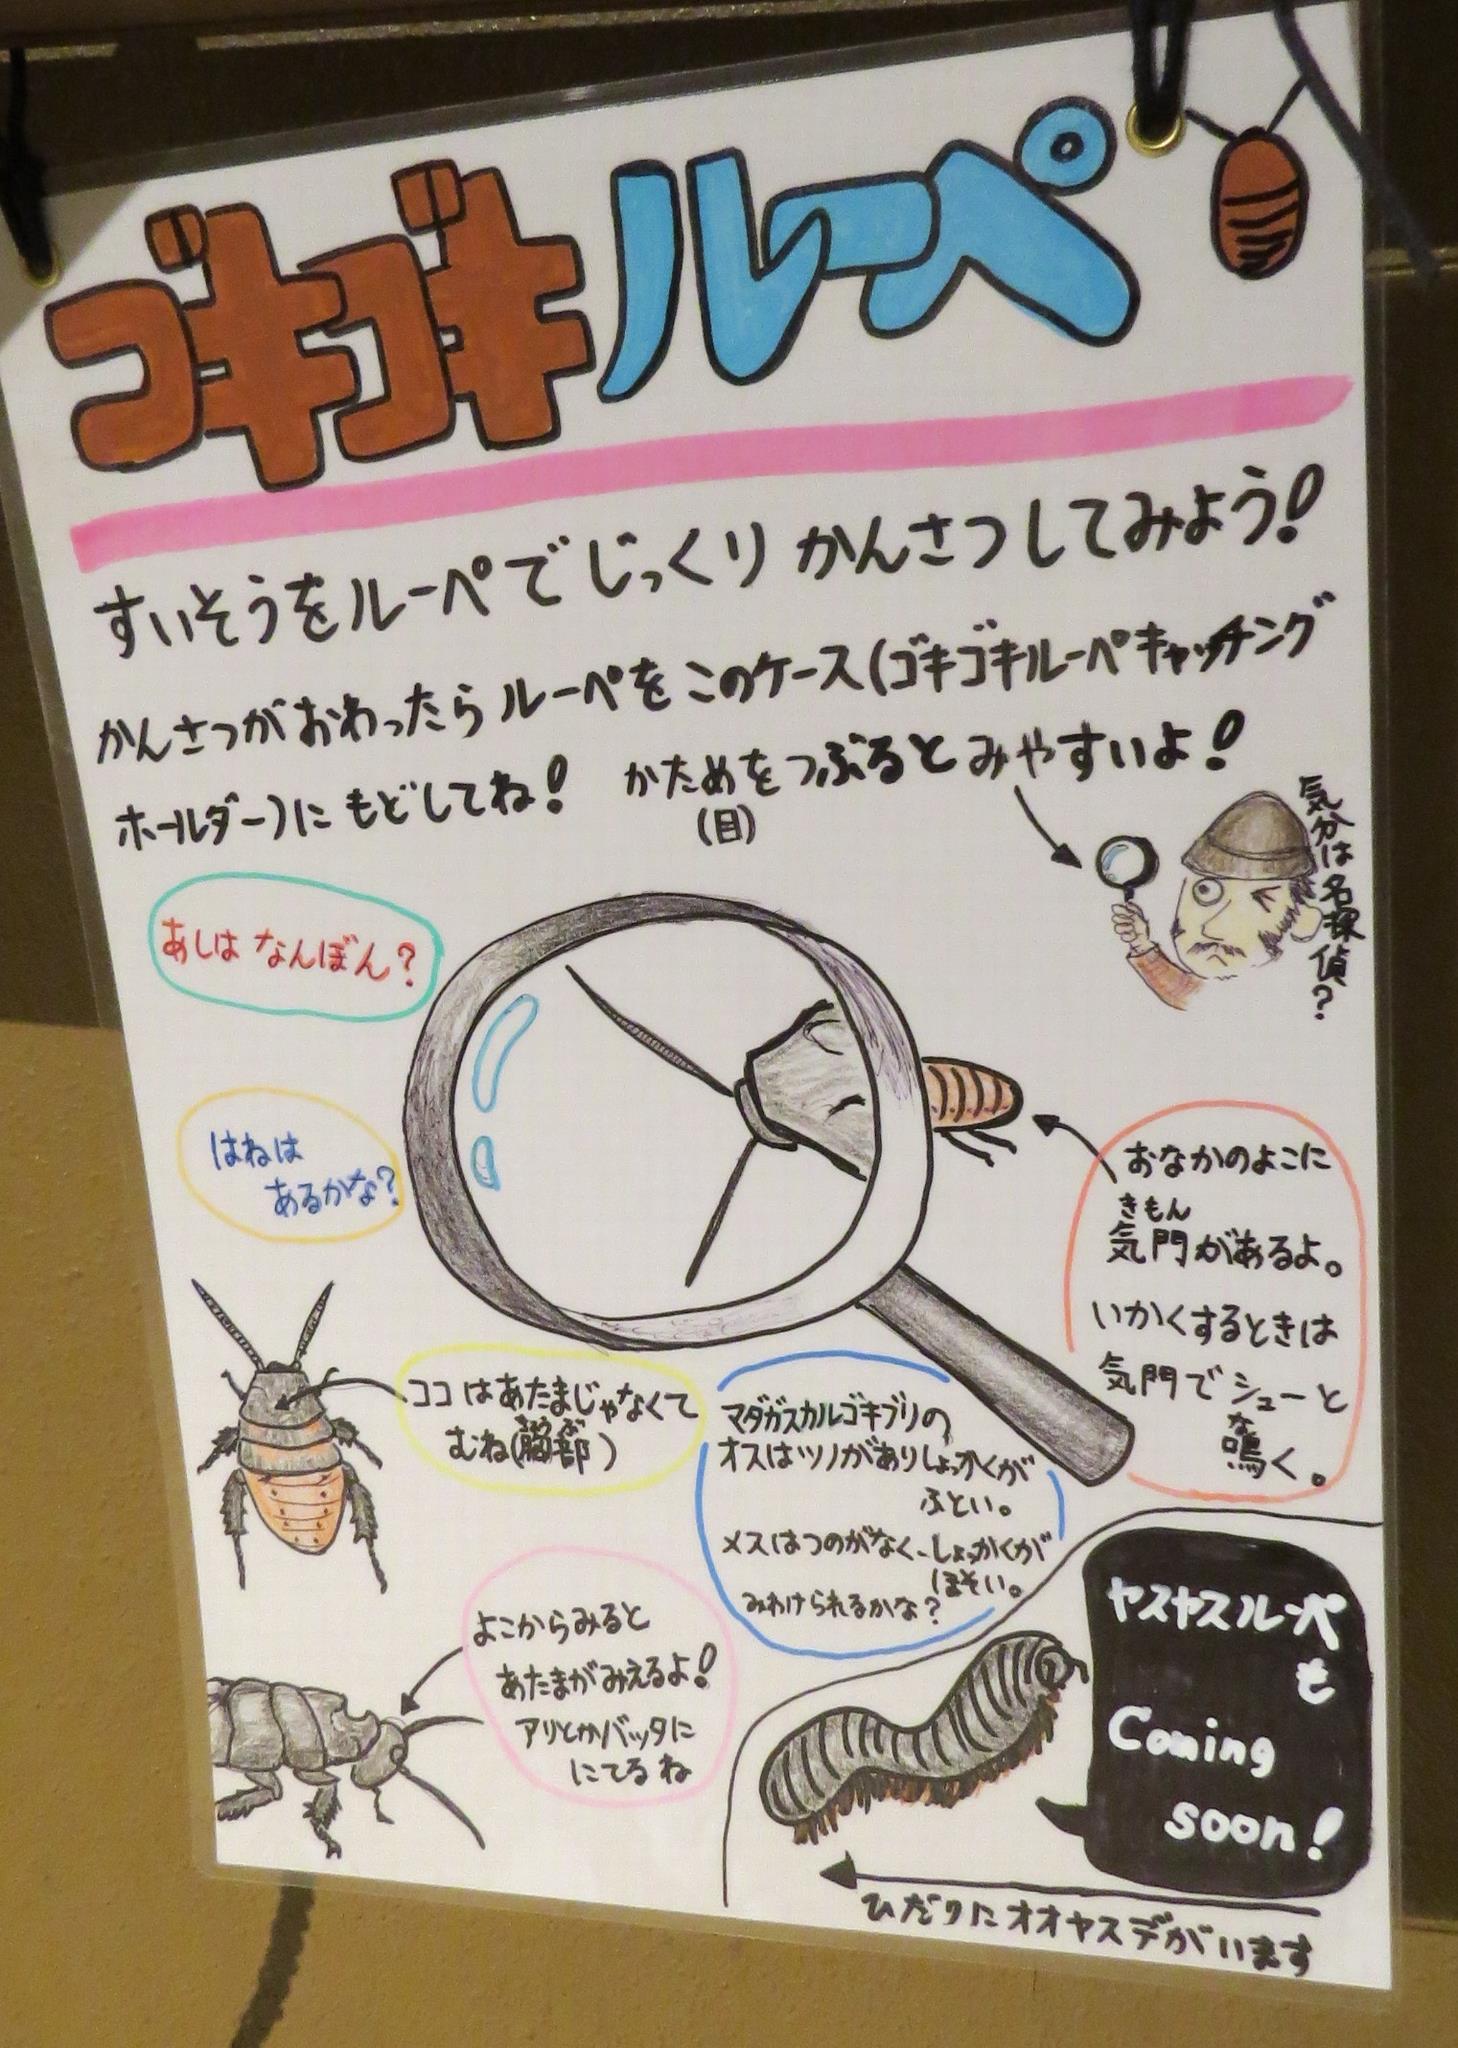 ゴキゴキルーペ
すいそうをルーペでじっくりかんさつしてみよう!
かんさつがおわったらルーペをこのケース(ゴキゴキルーペキャッチング
ホールダー)にもどしてね! かためをつぶるとみやすいよ!
(目)
気分は名探偵?
あしはなんぼん?
はねは
あるかな?
おなかのよこに
きもん
気門があるよ。
いかくするときは
気門でシューと
な
鳴く。
ココはあたまじゃなくて
きょうぶ
むね(胸部)
マダガスカルゴキブリの
オスはツノがありしょっかくが
ふとい。
メスはつのがなく、しょっかくが
ほそい。
みわけられるかな?
よこからみると
あたまがみえるよ!
アリとかバッタに
にてるね
ヤスヤスルーペ
も
Coming
soon!
ひだりにオオヤスデがいます